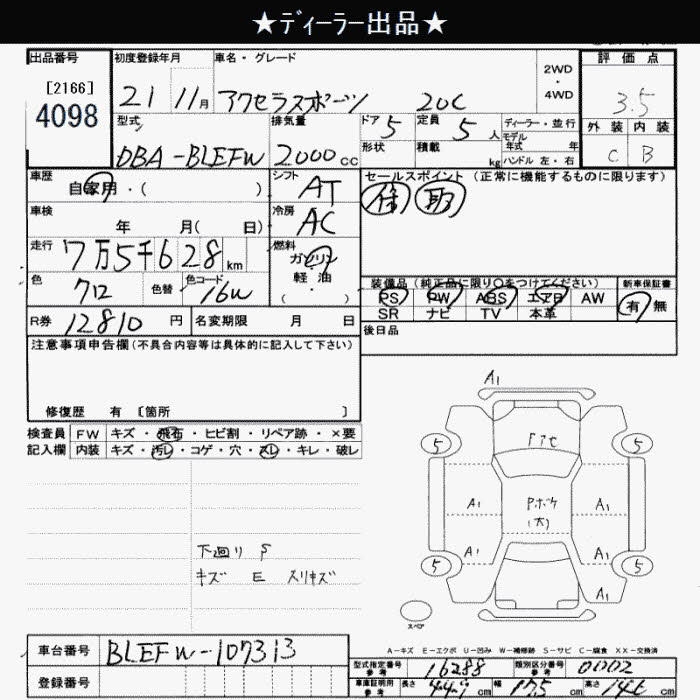 ★ﾃﾞｨｰﾗｰ出品★
出品番号 初度登録年月 車名・グレード 評価点
[2166] 2WD
4098 21 11月 アクセラスポーツ 20C ・ 3.5
4WD
型式 排気量 ドア 5 定員 5人 ディーラー・並行 外装 内装
モデル年式 年
DBA-BLEFW 2000cc 形状 積載 kg ハンドル 左・右 C B
車歴 自家用・( ) シフト AT セールスポイント (正常に機能するものに限ります)
車検 年 月( 日) 冷房 AC
走行 7万5千628km 燃料 ガソリン
軽・油
・( )
色 クロ 色替 色コード 16W 装備品 (純正品に限り○をつけてください) 新車保証書
PS PW ABS エアB AW 有 無
R券 12810円 名変期限 月 日 SR ナビ TV 本革
後日品
注意事項申告欄(不具合内容等は具体的に記入して下さい)
修復歴 有 〔箇所 〕
検査員 FW キズ・飛石・ヒビ割・リペア跡・×要
記入欄 内装 キズ・汚レ・コゲ・穴・スレ・キレ・破レ
A1
5 Fアセ 5
A1 P.ボケ A1
(大)
A1 A1
5 5
A1
スペア
下廻り S
キズ E スリキズ
A-キズ E-エクボ U-凹み W-補修跡 S-サビ C-腐食 XX-交換済
車台番号 BLEFW-107313
登録番号
型式指定番号 参考 16288 類別区分番号 参考 0002
車庫証明用 参考 長さ 449cm 幅 175cm 高さ 146cm